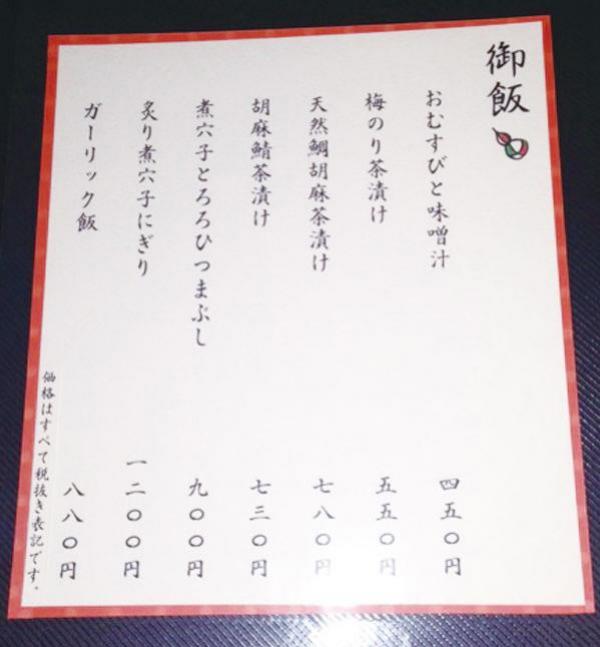 御飯
おむすびと味噌汁 四五〇円
梅のり茶漬け 五五〇円
天然鯛胡麻茶漬け 七八〇円
胡麻鯖茶漬け 七三〇円
煮穴子とろろひつまぶし 九〇〇円
炙り煮穴子にぎり 一二〇〇円
ガーリック飯 八八〇円
価格はすべて税抜き表記です。